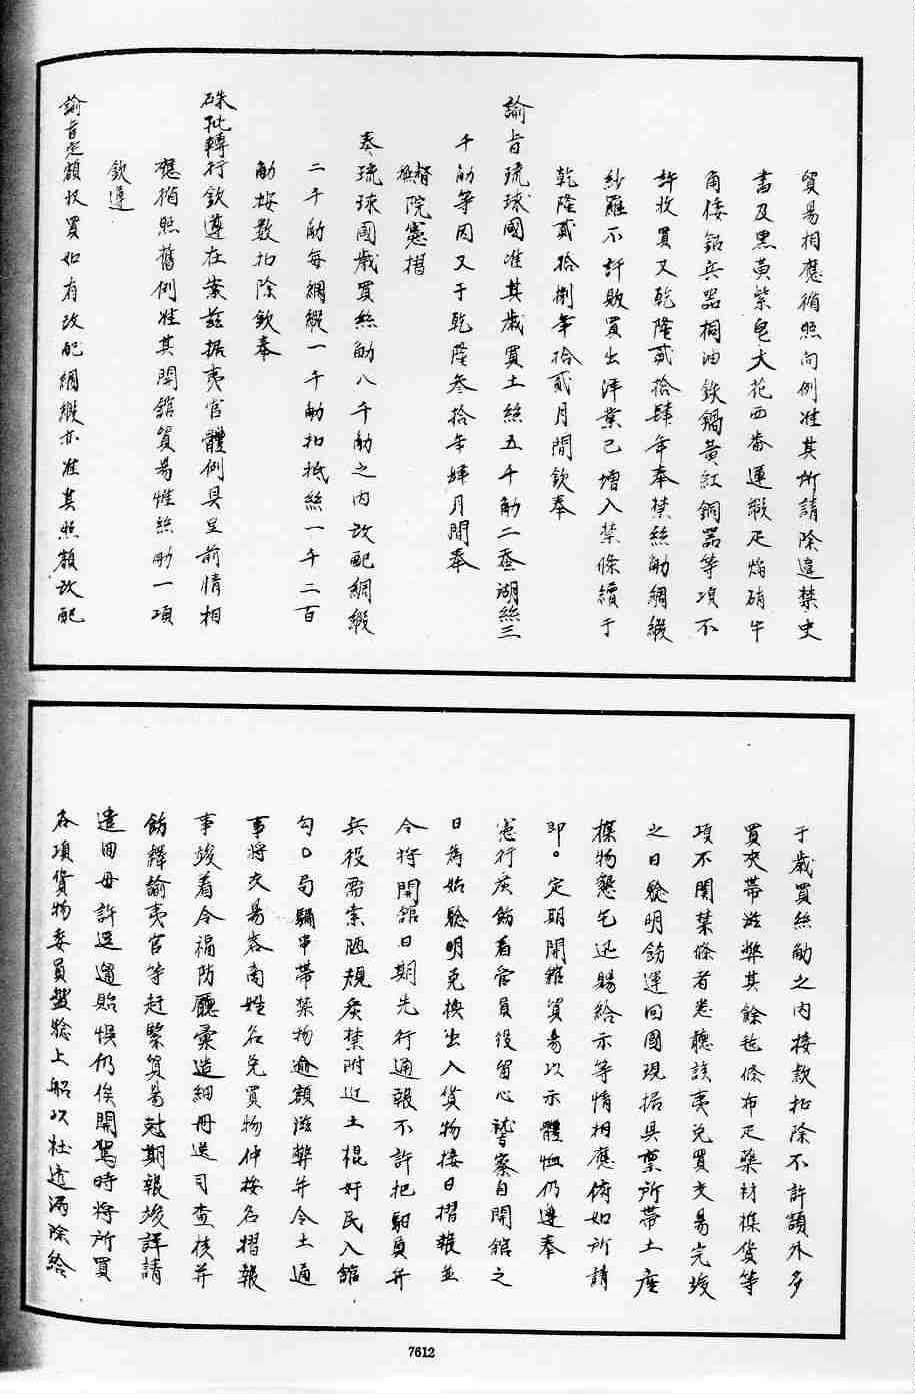 貿易相應循照向例准其所請除違禁史
書及黑黃紫皂大花西番蓮緞疋焰硝牛
角倭鉛兵器桐油鉄鍋黃紅銅器等項不
許收買又乾隆貳拾肆年奉禁絲觔綢緞
紗羅不許販買出洋業已增入禁條續于
乾隆貳拾捌年拾貳月間欽奉
諭旨琉球國准其歲買土絲五千觔二蚕湖絲三
千觔等因又于乾隆叁拾年肆月間奉
督撫院憲摺
奏琉球國歲買絲觔八千觔之內改配綢緞
二千觔每綢緞一千觔扣抵絲一千二百
觔按数扣除欽奉
硃批轉行欽遵在案茲据夷官體例具呈前情相
應循照舊例准其開舘貿易惟絲觔一項
欽遵
諭旨定額收買如有改配綢緞亦准其照額改配
于歲買絲觔之內按款扣除不許額外多
買夾帶滋弊其餘毡條布疋藥材雜貨等
項不關禁條者悉聽該夷兌買交易完竣
之日驗明飭運回國現据具稟所帶土產
雜物懇乞迅賜給示等情相應俯如所請
即。定期開舘貿易以示體恤仍遵奉
憲行度飭着官員役留心諬察自開舘之
日為始驗明兌換出入貨物按日摺報並
令将開舘日期先行通報不許把駐員弁
兵役需索陋規度禁附近土棍奸民入舘
勾〇局騙串帶禁物逾額滋弊并令土通
事将交易客商姓名兌買物件按名摺報
事竣着令福防廳彙造細冊送司查核并
飭譯諭夷官等赶緊貿易尅期報竣詳請
遣回毋許逗遛貽悞仍俟開駕時将所買
各項貨物委員盤驗上船以杜透漏除給
7612